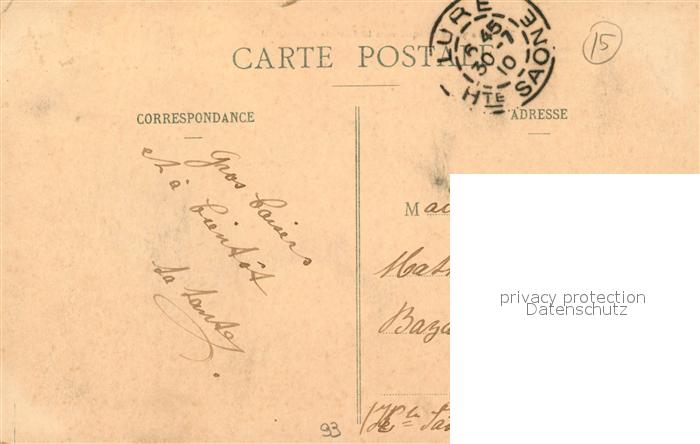 CARTE POSTALE
LURE
45
30-7
10
HTE SAONE
15
CORRESPONDANCE
ADRESSE
Gros baisers
et à bientôt
ta tante
M
privacy protection
Datenschutz
93